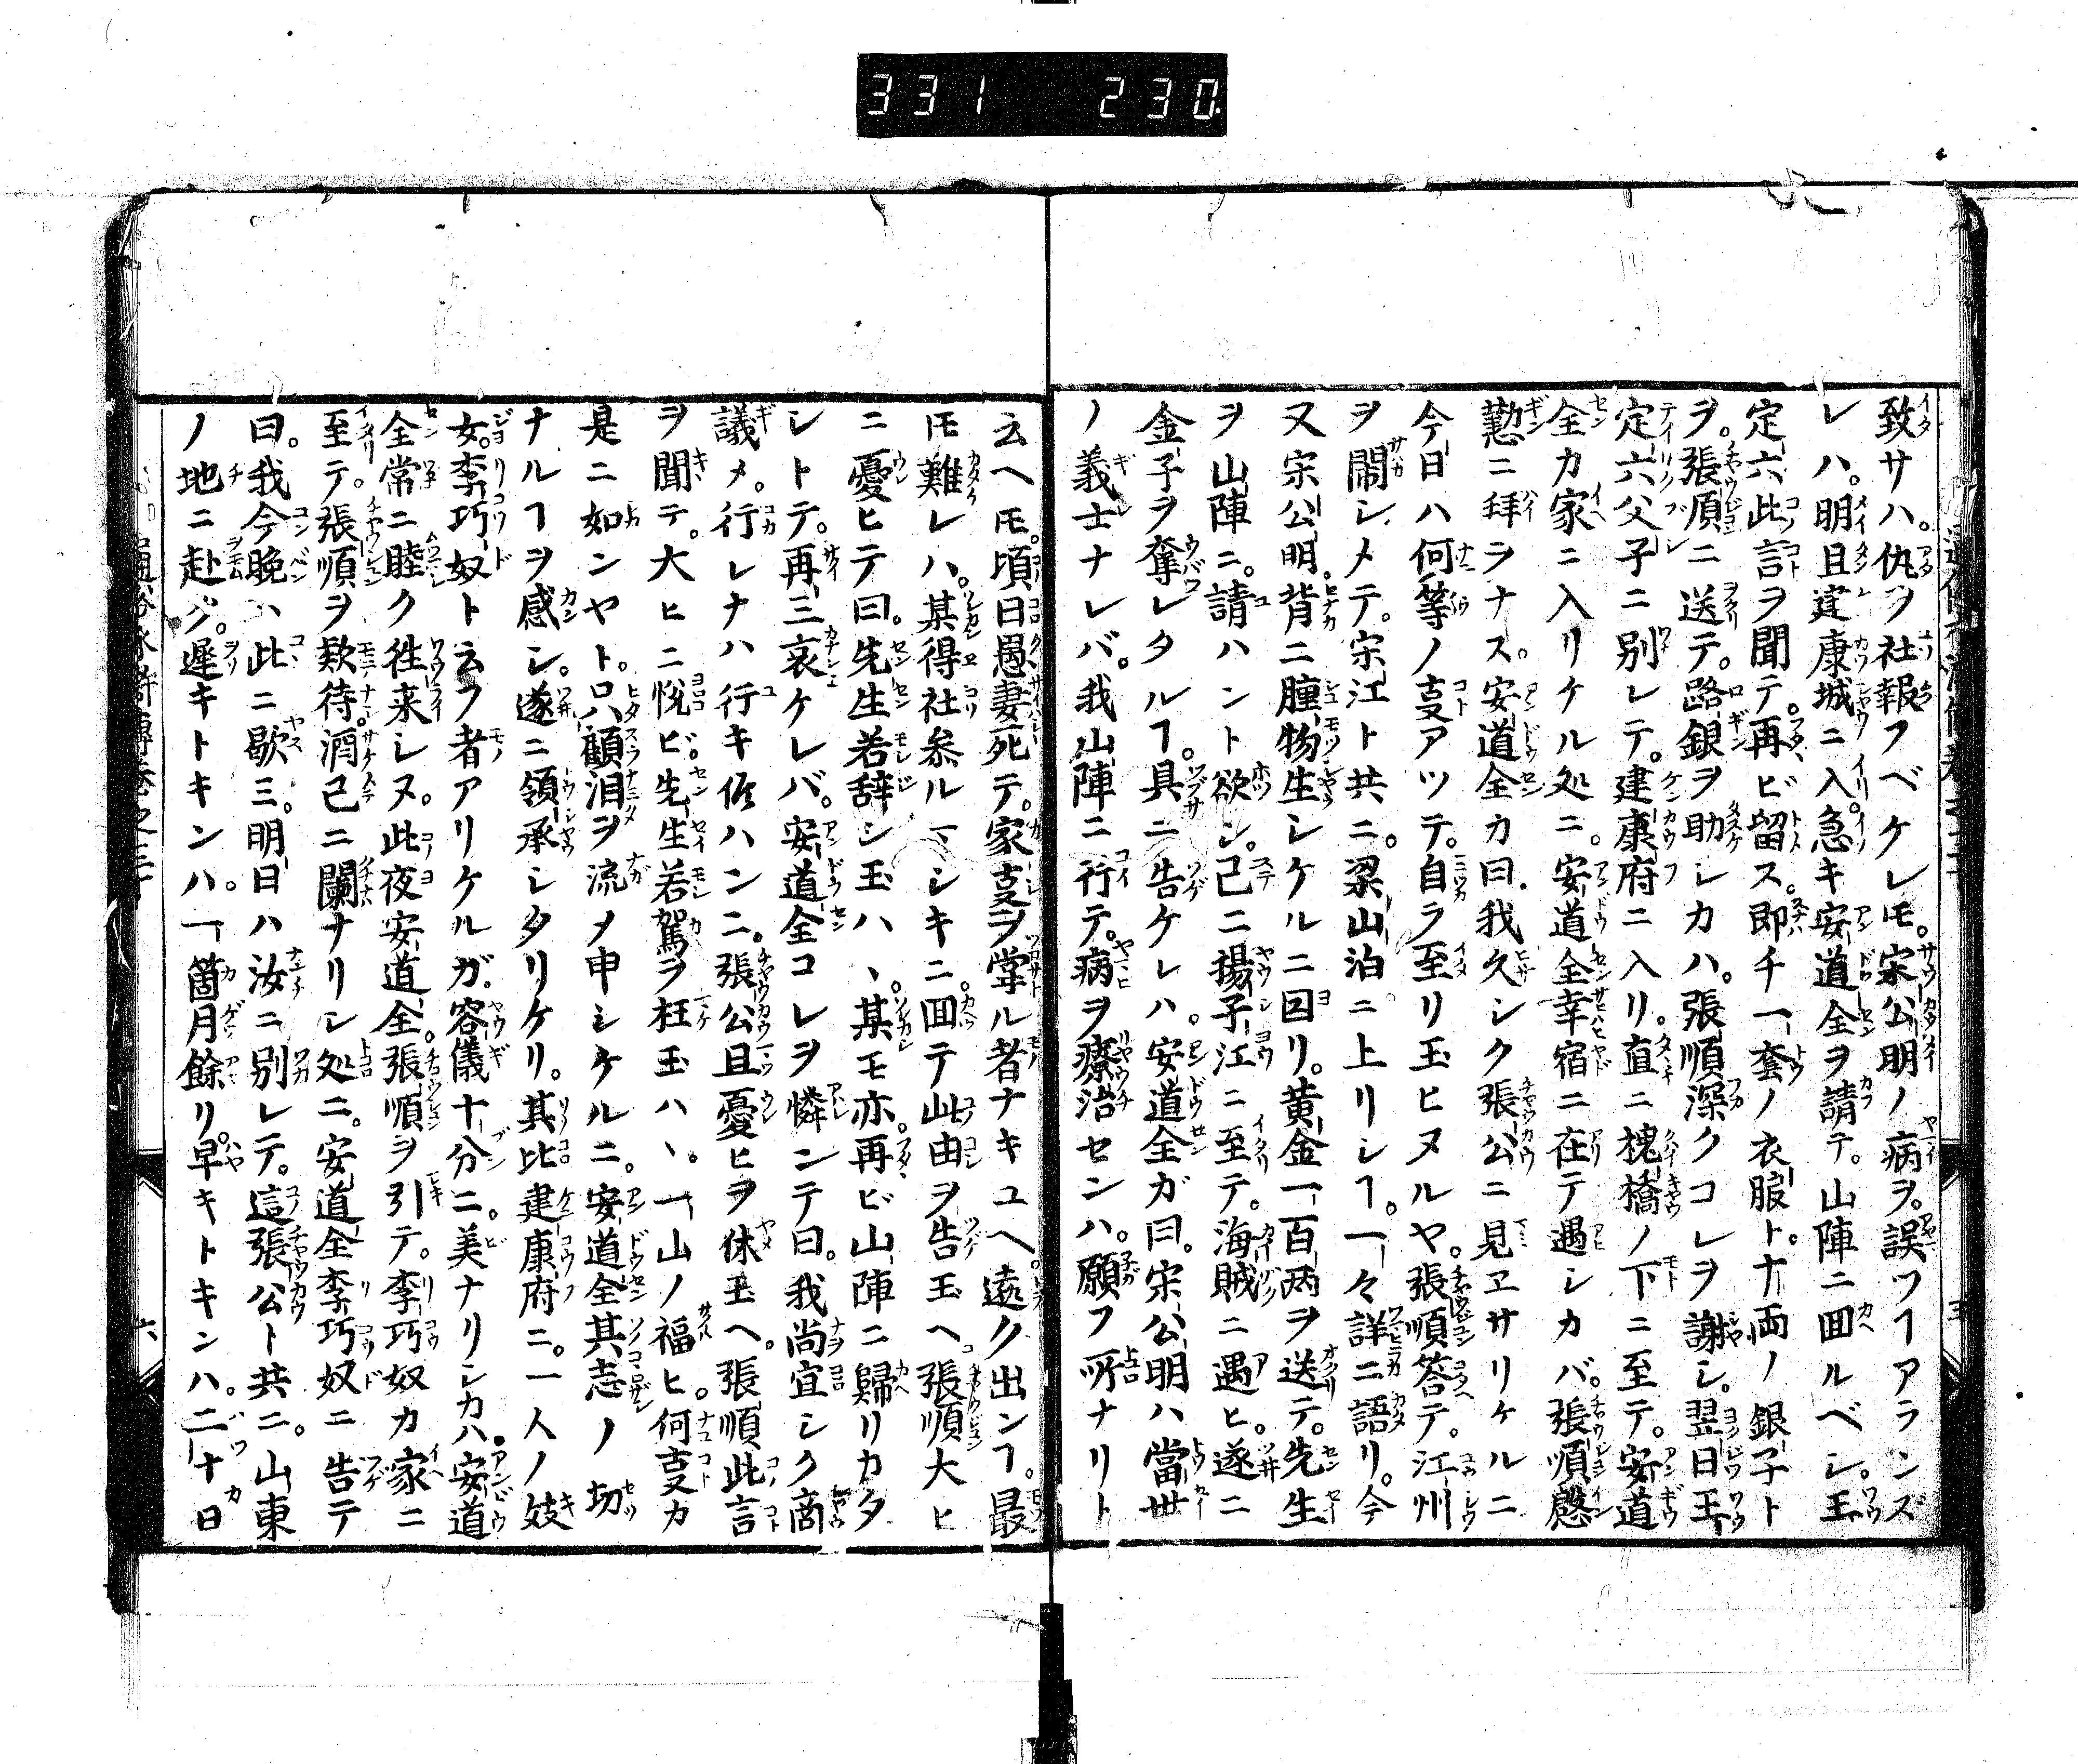 331 230
致サハ。仇ヲ社報フベケレ𪜈。宋公明ノ病ヲ。誤フヿアランズ
レハ。明且建康城ニ入。急キ安道全ヲ請テ。山陣ニ囬ルベシ。王
定六此言ヲ聞テ。再ビ留ス。即チ一套ノ衣服ト。十両ノ銀子ト
ヲ。張順ニ送テ。路銀ヲ助シカハ。張順深クコレヲ謝シ。翌日王
定六父子ニ別レテ。建康府ニ入リ。直ニ槐橋ノ下ニ至テ。安道
全カ家ニ入リケル処ニ。安道全幸宿ニ在テ遇シカバ。張順慇
懃ニ拜ヲナス。安道全カ曰。我久シク張公ニ見ヱサリケルニ
今日ハ何等ノ㕝アツテ。自ラ至リ玉ヒヌルヤ。張順答テ。江州
ヲ閙シメテ。宋江ト共ニ。梁山泊ニ上リシヿ。一々詳ニ語リ。今
又宋公明。背ニ腫物生シケルニ因リ。黄金一百两ヲ送テ。先生
ヲ山陣ニ。請ハント欲シ。已ニ揚子江ニ至テ。海賊ニ遇ヒ。遂ニ
金子ヲ奪レタルヿ。具ニ告ケレハ。安道全ガ曰。宋公明ハ當世
ノ義士ナレバ。我山陣ニ行テ。病ヲ療治センハ。願フ所ナリト
云ヘ𪜈。頃日愚妻死テ。家㕝ヲ掌ル者ナキユヘ。遠ク出ンヿ。最
𪜈難レハ。某得社参ルマシキニ。囬テ此由ヲ告玉ヘ。張順大ヒ
ニ憂ヒテ曰。先生若辞シ玉ハヽ。某モ亦。再ビ山陣ニ歸リカタ
シトテ。再三哀ケレバ。安道全コレヲ憐ンテ曰。我尚宜シク商
議メ。行レナハ行キ侭ハンニ。張公且憂ヒヲ休玉ヘ。張順此言
ヲ聞テ。大ヒニ悦ビ。先生若駕ヲ枉玉ハヽ。一山ノ福ヒ。何㕝カ
是ニ如ンヤト。只顧泪ヲ流メ申シケルニ。安道全其志ノ切
ナルヿヲ感シ。遂ニ領承シタリケリ。其比建康府ニ。一人ノ妓
女。李巧奴ト云フ者アリケルガ。容儀十分ニ。美ナリシカハ。安道
全常ニ睦ク徃来シヌ。此夜安道全。張順ヲ引テ。李巧奴カ家ニ
至テ。張順ヲ欵待。酒已ニ闌ナリシ処ニ。安道全李巧奴ニ告テ
曰。我今晩ハ此ニ歇ミ。明日ハ汝ニ別レテ。這張公ト共ニ。山東
ノ地ニ赴ク。遲キトキンハ。一箇月餘リ。早キトキンハ。二十日
六